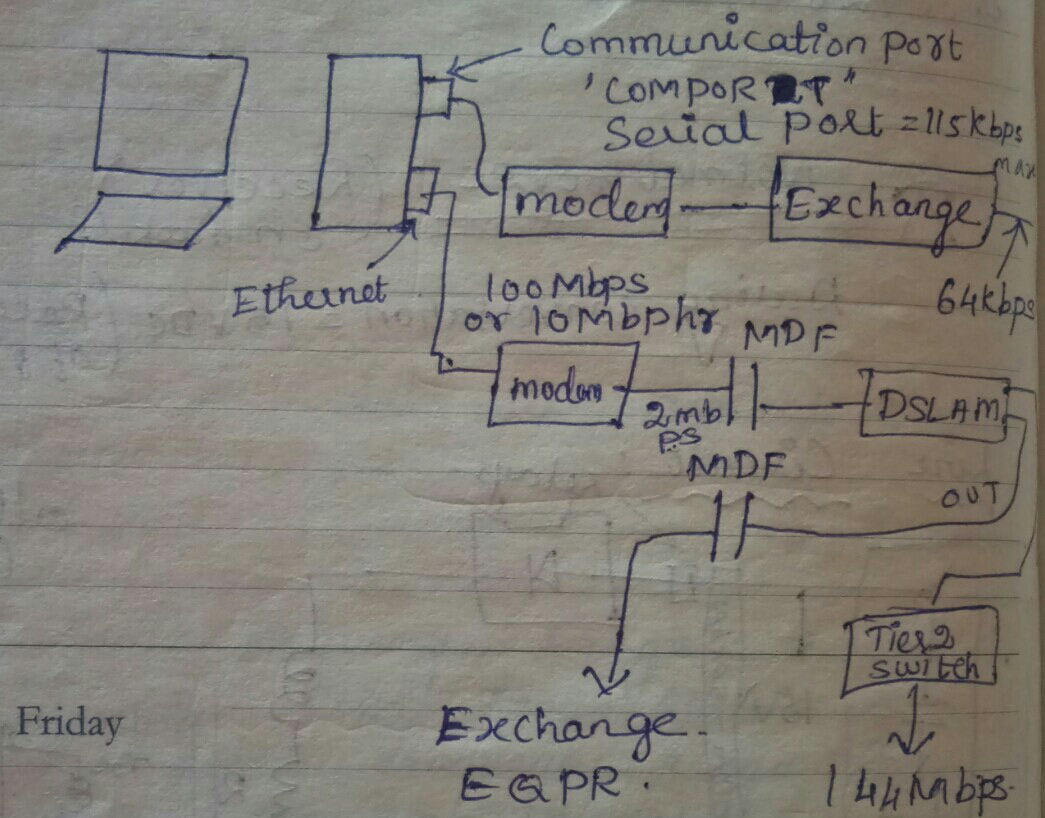 Communication port
'COMPORT"
Serial port = 115kbps
max
modem
Exchange
64kbps
Ethernet
100Mbps
or 10Mbphr
MDF
modem
2mb
ps
DSLAM
MDF
OUT
Tier2
switch
Friday
Exchange.
EQPR.
144Mbps.